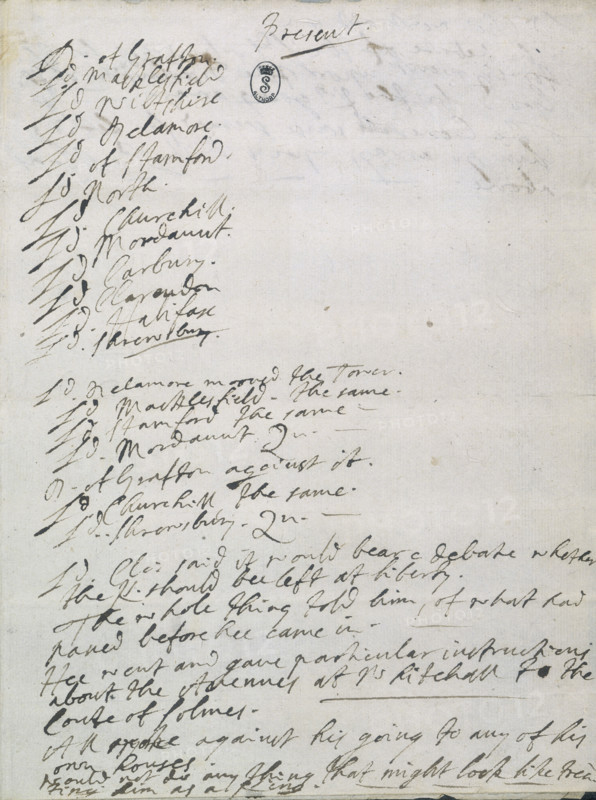 Present.
D. of Grafton.
Ld Macklesfield
Ld Wiltshire
Ld Delamore.
Ld of Stamford.
Ld North.
Ld Churchill.
Ld. Mordaunt.
Ld Carbury.
Ld Clarendon
Ld. Halifax
Ld. Shrewsbury.
Ld. Delamore moved the Tower.
Ld Macklesfield - the same.
Ld Stamford the same -
Ld. Mordaunt. Qu. -
D. of Grafton against it.
Ld Churchill the same.
Ld. Shrewsbury. Qu. -
Ld Cla: said it would beare debate whether
the K. should bee left at liberty.
The whole thing told him, of what had
passed before hee came in.
Hee went and gave particular instructions
about the Avenues at Whitehall to the
Conte of Solmes.
All spoke against his going to any of his
own houses
would not do any thing that might look like trea
ting him as a King.